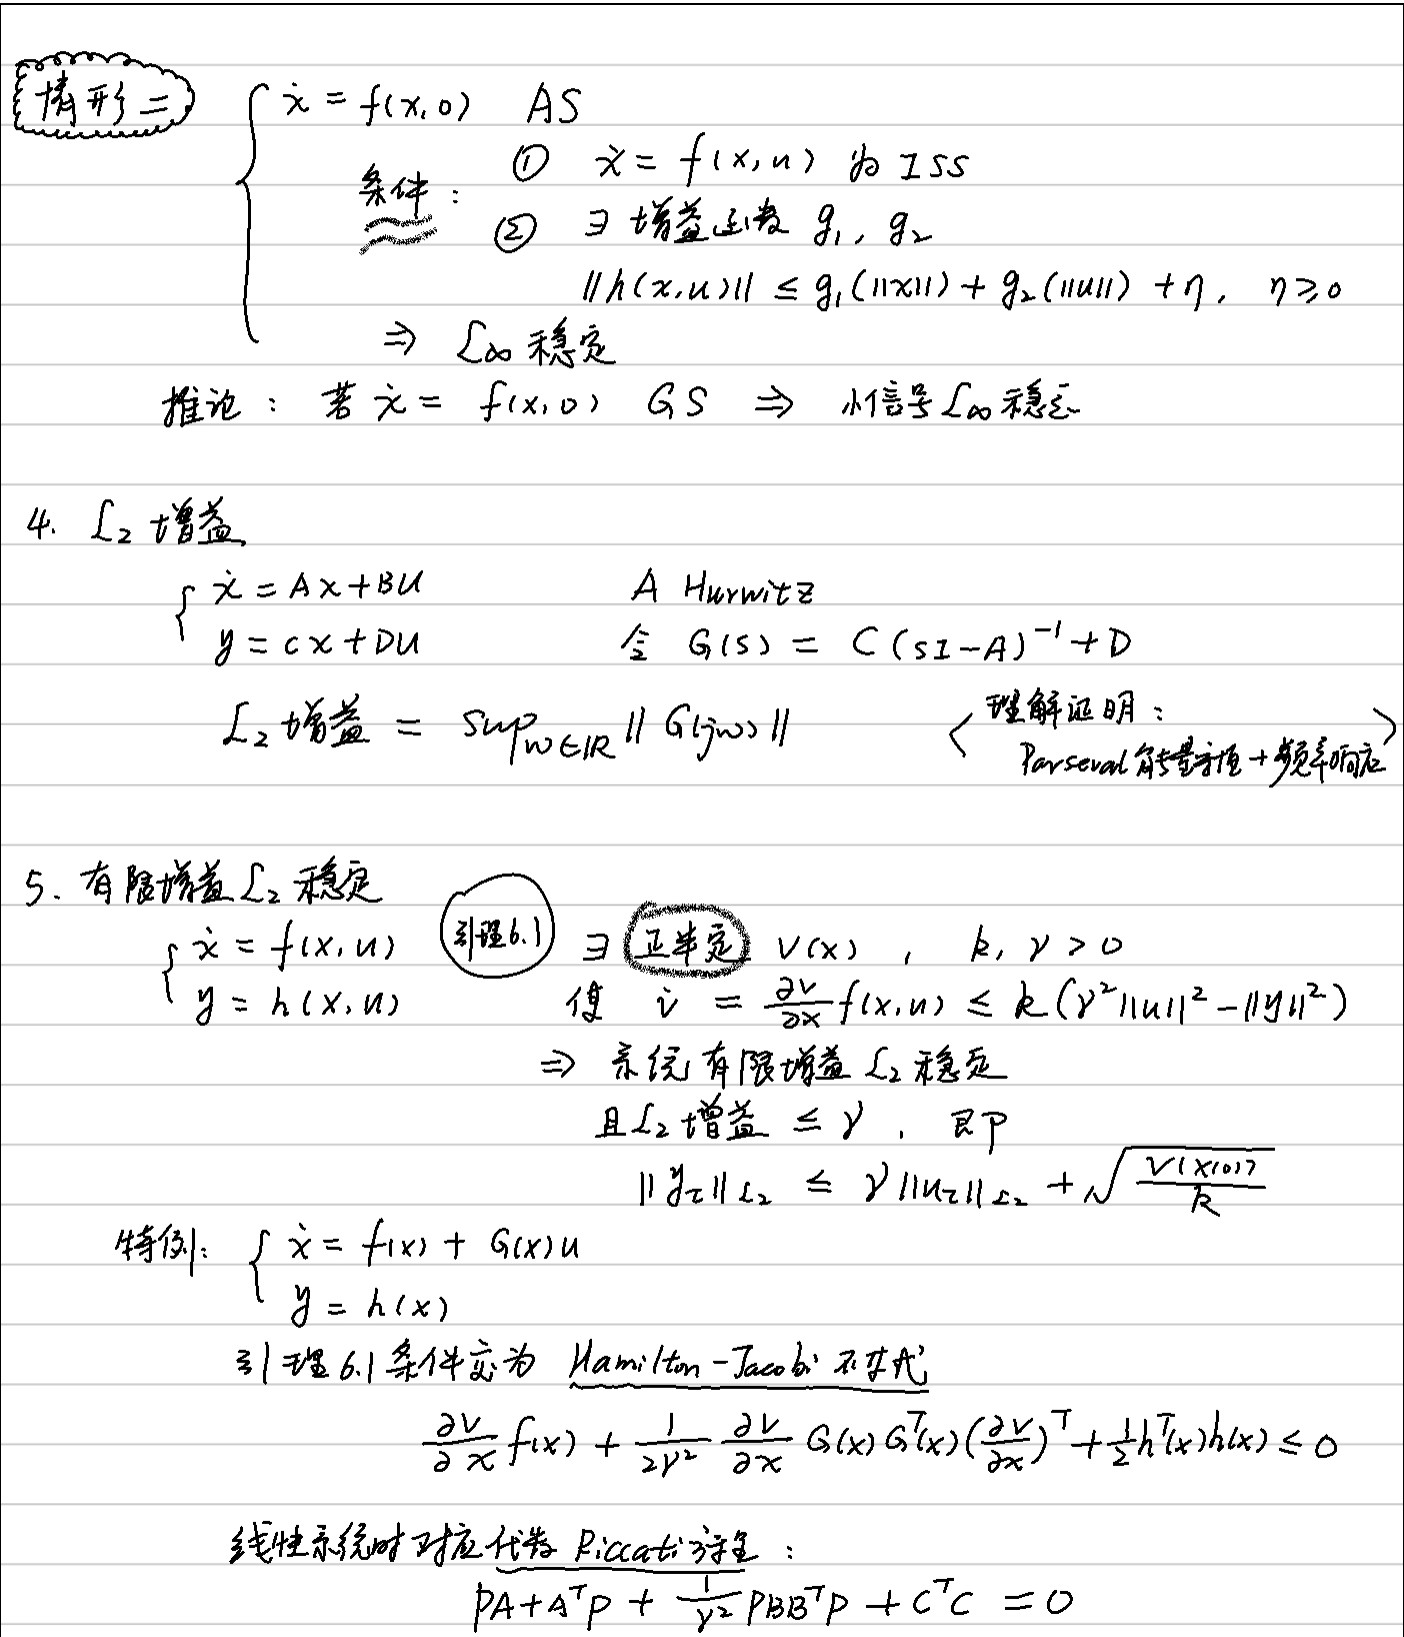 情形二 { ẋ = f(x,0) AS
条件: ① ẋ = f(x,u) 为 ISS
② ∃ 增益函数 g₁, g₂
||h(x,u)|| ≤ g₁(||x||) + g₂(||u||) + η, η ≥ 0
⇒ L∞ 稳定
推论: 若 ẋ = f(x,0) GS ⇒ 小信号 L∞ 稳定
4. L₂ 增益
{ ẋ = Ax+Bu A Hurwitz
y = Cx+Du 令 G(s) = C(sI-A)⁻¹+D
L₂ 增益 = sup_{w∈ℝ} ||G(jw)|| < 理解证明:
Parseval 能量守恒 + 频率响应 >
5. 有限增益 L₂ 稳定
{ ẋ = f(x,u) 引理6.1 ∃ 正半定 V(x), k, γ > 0
y = h(x,u) 使 v̇ = ∂V/∂x f(x,u) ≤ k(γ²||u||² - ||y||²)
⇒ 系统有限增益 L₂ 稳定
且 L₂ 增益 ≤ γ, 即
||y_τ||_{L₂} ≤ γ||u_τ||_{L₂} + √(V(x(0))/k)
特例: { ẋ = f(x) + G(x)u
y = h(x)
引理6.1条件变为 Hamilton-Jacobi 不等式
∂V/∂x f(x) + 1/(2γ²) ∂V/∂x G(x)Gᵀ(x)(∂V/∂x)ᵀ + ½hᵀ(x)h(x) ≤ 0
线性系统时对应代数 Riccati 方程:
PA+AᵀP + 1/γ² PBBᵀP + CᵀC = 0